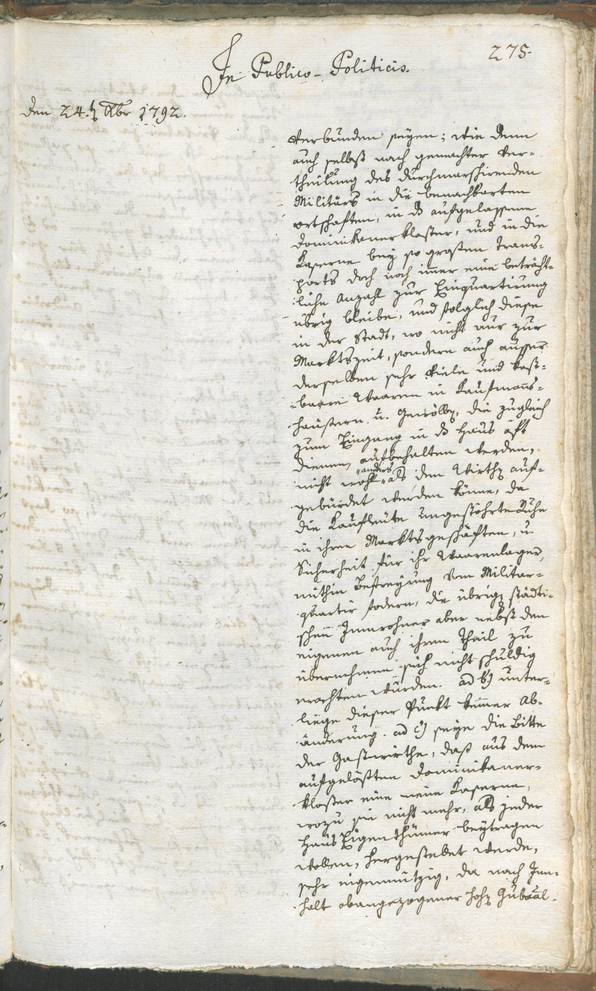 275.
In Publico-Politicis.
Den 24. 9ber 1792.
verbunden seyen; wie dann
auch selbst nach gemachter Ver-
theilung des durchmarschirenden
Militärs in die benachbarten
ortschaften, in das aufgelassene
Dominikanerkloster, und in die
Kaserne bey so großen Trans-
ports doch noch imer eine beträcht-
liche Anzahl zur Einquartirung
übrig bleibe, und folglich diese
in der Stadt, wo nicht nur zur
Marktszeit, sondern auch ausser
derselben sehr viele und kost-
bare Waaren in Kaufmanns-
häusern u. Gewölbs, die zugleich
zum Eingang in das Haus oft
dienen, aufbehalten werden,
nicht wohl anders als den Wirths auf-
gebürdet werden könne, da
die Kaufleute ungestöhrte Ruhe
in ihren Marktsgeschäften, u.
Sicherheit für ihr Waarenlager,
mithin Befreyung vom Militar-
quartir fodern, die übrigen städti-
schen Innwohner aber nebst den
eigenen auch ihren Theil zu
übernehmen sich nicht schuldig
erachten würden. ad b) unter-
liege dieser Punkt keiner Ab-
änderung. ad c) seye die Bitte
der Gastwirthe, daß aus dem
aufgelößten Dominikaner-
kloster eine neue Kaserne,
wozu sie nicht mehr, als jeder
Haus Eigenthümer beytragen
wollen, hergestellet werde,
sehr eigennützig, da nach Inn-
halt obangezogener hohen Gubernial-